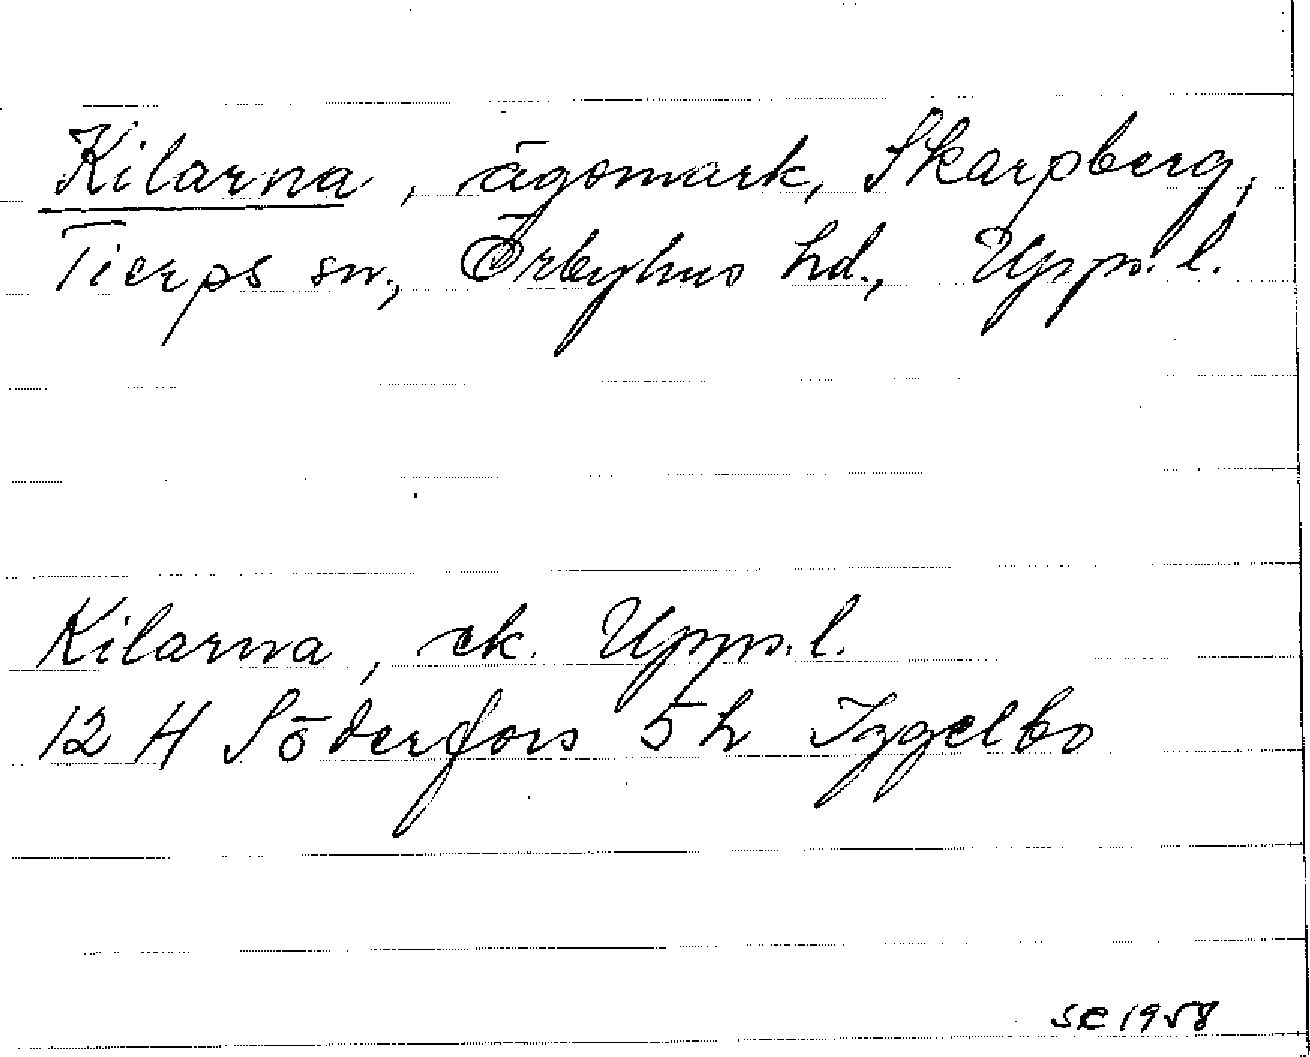 Kilarna, ägomark, Skarpberg,
Tierps sn., Örbyhus hd., Upps. l.
Kilarna, ek. Upps. l.
12 H Söderfors 5 h Iggelbo
SE 1958